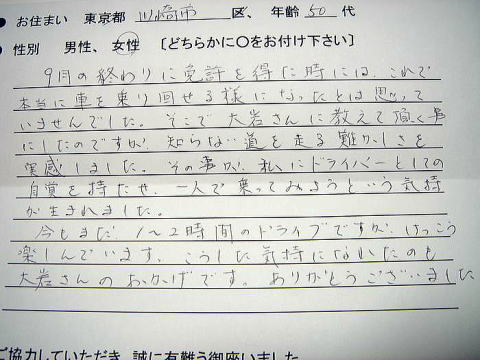 ● お住まい 東京都 川崎市 区、 年齢 50 代
● 性別 男性、 女性 〔どちらかに〇をお付け下さい〕
9月の終わりに免許を得た時には、これで
本当に車を乗り回せる様になったとは思って
いませんでした。そこで大岩さんに教えて頂く事
にしたのですが、知らない道を走る難かしさを
実感しました。その事が、私にドライバーとしての
自覚を持たせ、一人で乗ってみようという気持
が生まれました。
今もまだ、1〜2時間のドライブですが、けっこう
楽しんでいます。こうした気持になれたのも
大岩さんのおかげです。ありがとうございました
ご協力していただき、誠に有難う御座いました